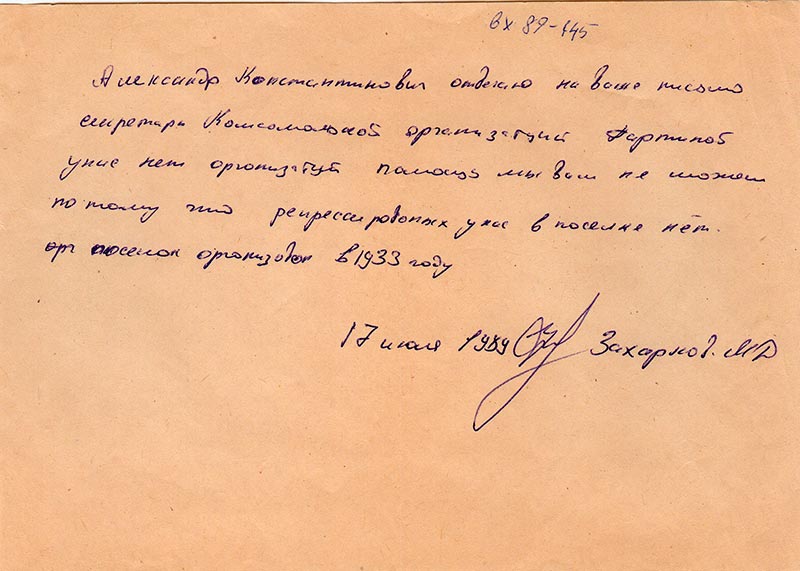 вх 89-145
Александр Константинович отвечаю на ваше письмо
секретарю Комсомольской организатции Партиной
унас нет организатций помощ мы вам не можем
потому что репрессированых унас в поселке нет.
орг поселок организован в 1933 году
17 июля 1989 Захарков. МД